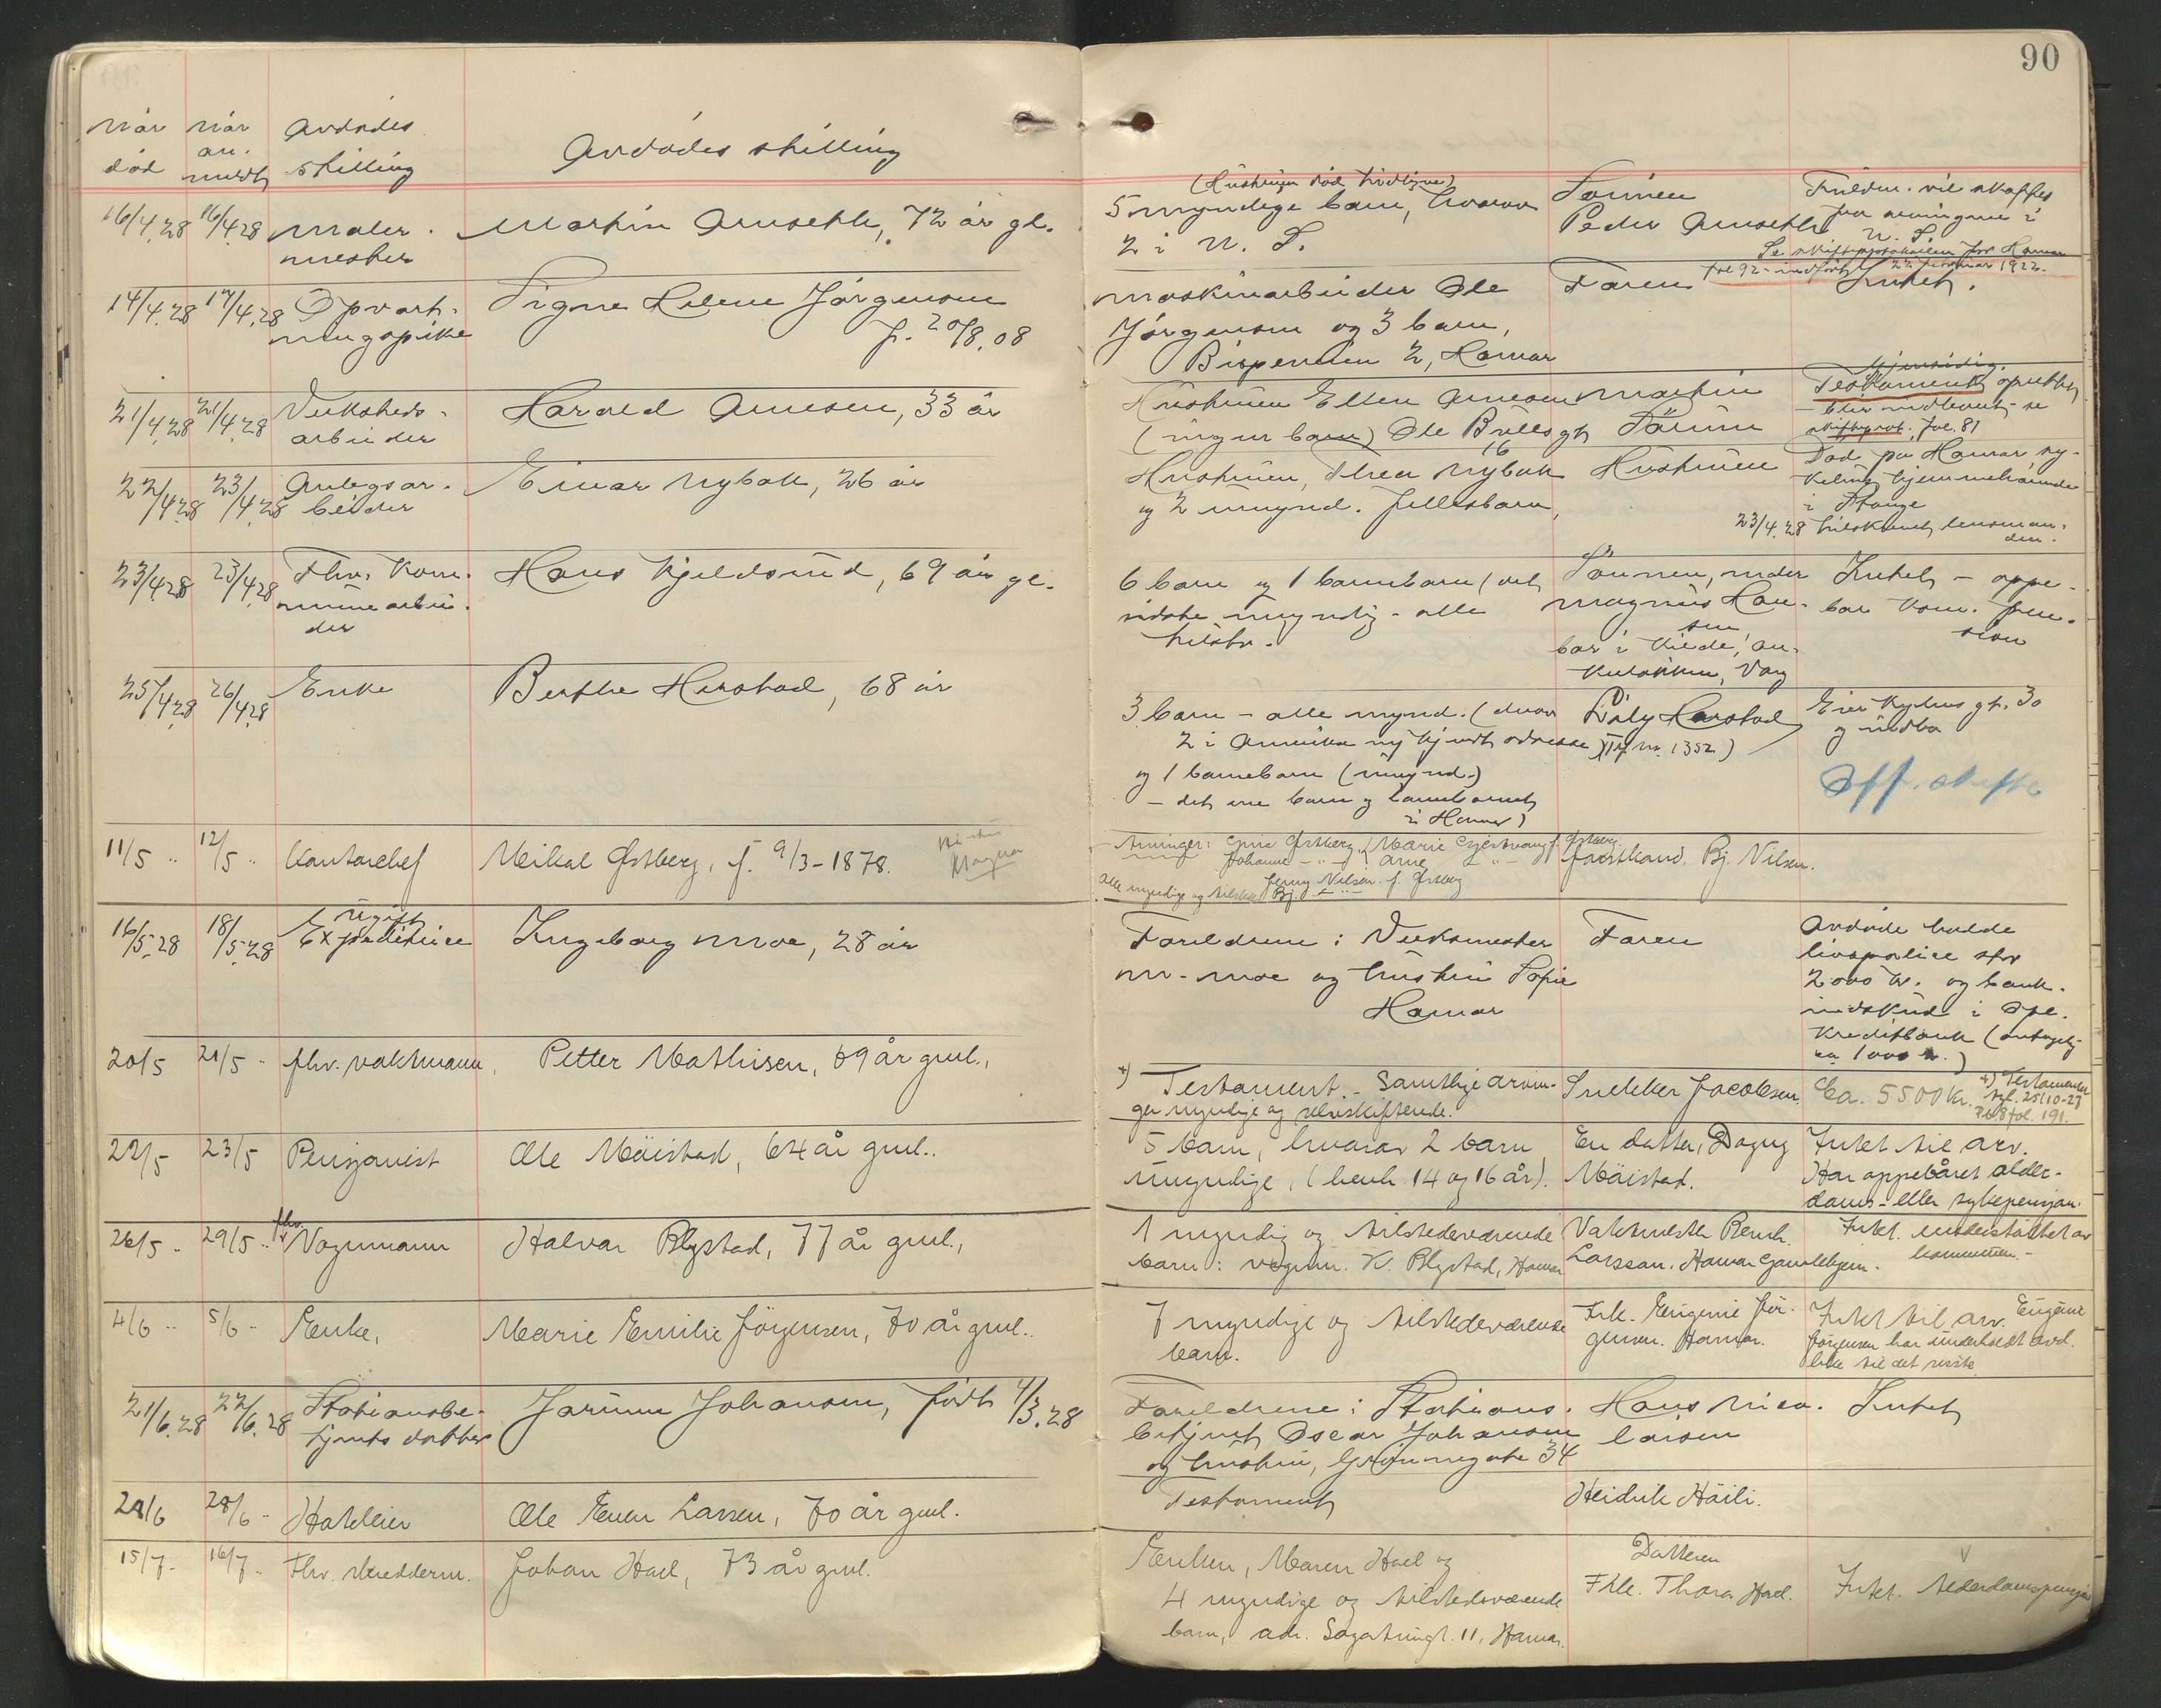 90
Når død
Når an. meldt
Avdødes stilling
Avdødes stilling
16/4.28 16/4.28 Maler-
mester
Martin Aruseth, 72 år gl.
(Hustruen død tidligere)
5 myndige barn, hvorav
2 i U. S.
Sønnen
Peder Aruseth
vil skaffes
fra arvingene i
U. S.
Se skifteprotokollen for Hamar
fol 92 - indført 22 februar 1922.
14/4.28 17/4.28 Opvart-
ningspike
Signe Helene Jörgensen
f. 20/8.08
Maskinarbeider Ole
Jörgensen og 3 barn,
Bispeveien 2, Hamar
Faren
Intet.
21/4.28 21/4.28 Verksteds-
arbeider
Harald Arnesen, 33 år
Hustruen Ellen Arnesen
(ingen barn) Ole Bullsgt
16
Martin
Gjensidig
Testament oprettet
- blir indlevert - se
skifteprot. fol. 81
22/4.28 23/4.28 Anlegsar-
beider
Einar Nybak, 26 år
Hustruen, Thea Nybak
og 2 umynd. fellesbarn,
Hustruen
Død på Hamar sy-
kehus hjemmehørende
i Stange
23/4.28 tilskrevet lensman-
den.
23/4.28 23/4.28 Fhv. kom-
munearbei-
der
Hans Kjeldsrud, 69 år gl.
6 barn og 1 barnebarn (det
sidste myndig - alle
tilstv.
Sönnen, under
Magnus Han-
sen
bor i Kilde, an-
Vang
Intet - oppe-
bar kom. pen-
sion
25/4.28 26/4.28 Enke
Berthe Herstad, 68 år
3 barn - alle mynd. (derav
2 i Amerika uten kjendt adresse)
og 1 barnebarn (mynd.)
- det ene barn og barnebarnet
i Hamar)
Herstad
(Tlf. nr. 1352.)
Eier gt. 30
og indbo
Off. skifte
11/5 " 12/5 " Kontorchef
Mikal Østberg, f. 9/3-1878.
Magnar
Arvinger: Østberg, Marie Gjestvang f. Østberg.
Johanne - " - Arne - " -
Jenny Nilsen f. Østberg
Alle myndige og tilsted.
forstkand. Bj. Nilsen.
16/5.28 18/5.28 ugift
Expeditrice
Ingeborg Moe, 28 år
Foreldrene: Verksmester
M. Moe og hustru Sofie
Hamar
Faren
Avdøde hadde
livspolice stor
2000 kr. og bank-
indskud i Opl.
Kreditbank (antagelig
ca 1000 kr.)
20/5 21/5 - fhv. vaktmann,
Petter Mathisen, 69 år gml.,
+) Testament. - Samtlige arvin-
ger myndige og selvskiftende.
Snekker Jacobsen.
Ca. 5500 kr. +) Testamentet
tgl. 25/10-27
fol. 191.
22/5 23/5 Pensjonist
Ole Möistad, 64 år gml..
5 barn, hvorav 2 barn
umyndige, (henh. 14 og 16 år).
En datter, Dagny
Möistad.
Intet til arv.
Har oppebåret alder-
doms- eller sykepensjon.
26/5 - 29/5 " fhv.
Vognmann
Halvar Blystad, 77 år gml.,
1 myndig og tilstedeværende
barn: vognm. K. Blystad, Hamar
Vaktmester Bernh.
Larssan, Hamar Gamlehjem.
Intet. understøttet av
kommunen. -
4/6 " 5/6 - Enke,
Marie Emilie Jörgensen, 70 år gml..
7 myndige og tilstedeværende
barn.
Frk. Eugenie Jör-
gensen. Hamar.
Intet til arv. Eugenie
Jörgensen har underholdt avd.
til det siste
21/6.28 22/6.28 Stationsbe-
tjents datter
Jorunn Johansen, født 4/3.28
Foreldrene: Stations-
betjent Oscar Johansen
og hustru, Grönnegate 34
Hans Nico-
laisen
Intet
28/6 28/6 - Hoteleier
Ole Even Larsen, 70 år gml.
Testament
Heidrik Häili.
15/7 - 16/7 - Fhv. skredderm.
Johan Hoel, 73 år gml.
Enken, Maren Hoel og
4 myndige og tilstedeværende
barn, adr. Sagatungt. 11, Hamar.
Datteren
Frk. Thora Hoel.
Intet. Alderdomspensjon